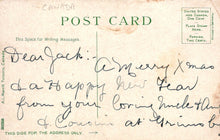 CANADA
POST CARD
UNITED STATES
AND CANADA,
ONE CENT
This Space for Writing Messages.
Dear Jack:-
A Merry Xmas
& a Happy New Year
from your loving Uncle &
& Cousin at Grimsby
THIS SIDE FOR THE ADDRESS ONLY.